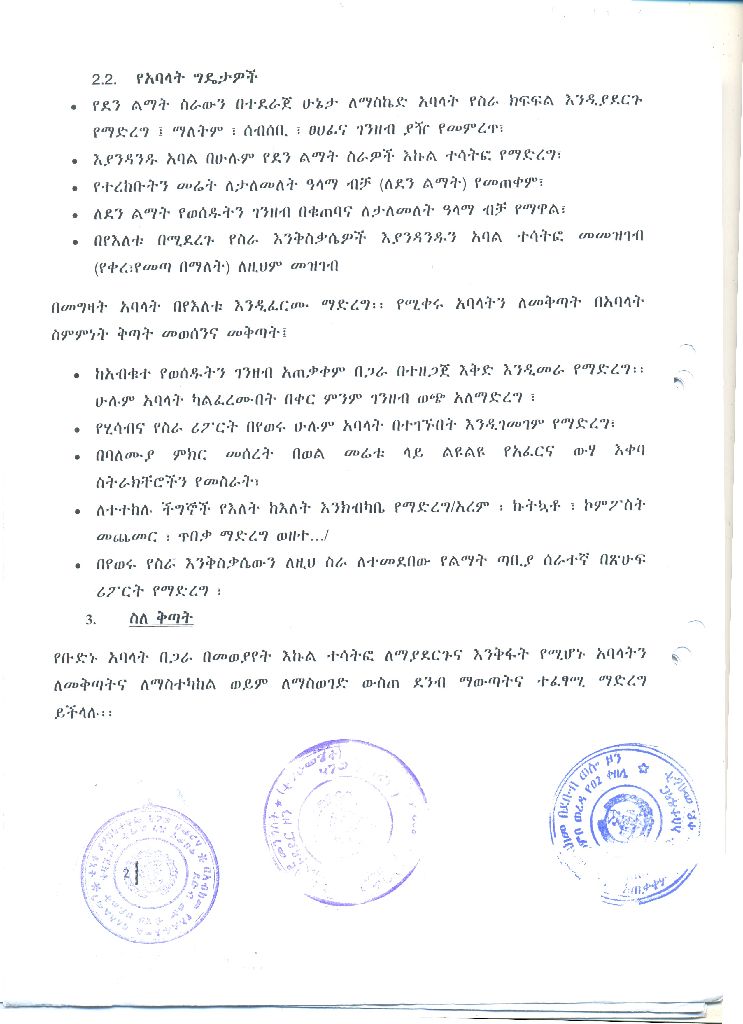 2.2. የአባላት ግዴታዎች
• የደን ልማት ስራውን በተደራጀ ሁኔታ ለማስኬድ አባላት የስራ ክፍፍል እንዲያደርጉ
የማድረግ ፤ ማለትም ፡ ሰብሰቢ ፡ ፀሀፊና ገንዘብ ያዥ የመምረጥ፣
• እያንዳንዱ አባል በሁሉም የደን ልማት ስራዎች እኩል ተሳትፎ የማድረግ፣
• የተረከቡትን መሬት ለታለመለት ዓላማ ብቻ (ለደን ልማት) የመጠቀም፣
• ለደን ልማት የወሰዱትን ገንዘብ በቁጠባና ለታለመለት ዓላማ ብቻ የማዋል፣
• በየእለቱ በሚደረጉ የስራ እንቅስቃሴዎች እያንዳንዱን አባል ተሳትፎ መመዝገብ
(የቀረ፣የመጣ በማለት) ለዚህም መዝገብ
በመግዛት አባላት በየእለቱ እንዲፈርሙ ማድረግ፡፡ የሚቀሩ አባላትን ለመቅጣት በአባላት
ስምምነት ቅጣት መወሰንና መቅጣት፤
• ከአብቁተ የወሰዱትን ገንዘብ አጠቃቀም በጋራ በተዘጋጀ እቅድ እንዲመራ የማድረግ፡፡
ሁሉም አባላት ካልፈረሙበት በቀር ምንም ገንዘብ ወጭ አለማድረግ ፣
• የሂሳብና የስራ ሪፖርት በየወሩ ሁሉም አባላት በተገኙበት እንዲገመገም የማድረግ፣
• በባለሙያ ምክር መሰረት በወል መሬቱ ላይ ልዩልዩ የአፈርና ውሃ እቀባ
ስትራክቸሮችን የመስራት፣
• ለተተከሉ ችግኞች የእለት ከእለት እንክብካቤ የማድረግ/አረም ፡ ኩትኳቶ ፡ ኮምፖስት
መጨመር ፡ ጥበቃ ማድረግ ወዘተ.../
• በየወሩ የስራ እንቅስቃሴውን ለዚህ ስራ ለተመደበው የልማት ጣቢያ ሰራተኛ በጽሁፍ
ሪፖርት የማድረግ ፣
3. ስለ ቅጣት
የቡድኑ አባላት በጋራ በመወያየት እኩል ተሳትፎ ለማያደርጉና እንቅፋት የሚሆኑ አባላትን
ለመቅጣትና ለማስተካከል ወይም ለማስወገድ ውስጠ ደንብ ማውጣትና ተፈፃሚ ማድረግ
ይችላሉ፡፡
2